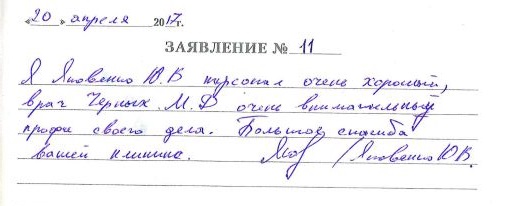 «20» апреля 2017г.
ЗАЯВЛЕНИЕ № 11
Я Яковенко Ю.В персонал очень хороший,
врач Черных М.Д очень внимательный
профи своего дела. Большое спасибо
вашей клинике. Яков /Яковенко Ю.В.